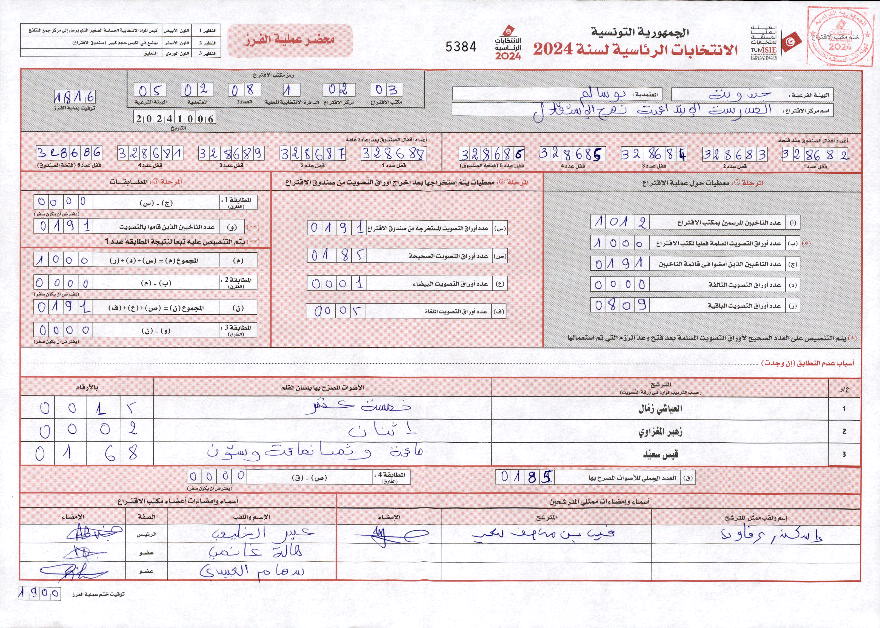 الجمهورية التونسية
الانتخابات الرئاسية لسنة 2024
5384
الانتخابات الرئاسية 2024
محضر عملية الفرز
الهيئة الفرعية: جندوبة
المعتمدية: بوسالم
اسم مركز الاقتراع: المدرسة الابتدائية نهج الاستقلال
رمز مكتب الاقتراع
03 02 1 08 02 05
مكتب الاقتراع مركز الاقتراع الدائرة الانتخابية المحلية العمادة المعتمدية الهيئة الفرعية
20241006
التاريخ
1816
توقيت بداية الفرز
328682 328683 328684 328685 328686
328688 328687 328689 328681 328686
المرحلة 1: معطيات حول عملية الاقتراع
(أ) عدد الناخبين المرسمين بمكتب الاقتراع 1012
(ب) عدد أوراق التصويت المسلمة فعليا لمكتب الاقتراع 1000
(ج) عدد الناخبين الذين امضوا في قائمة الناخبين 0191
(د) عدد أوراق التصويت التالفة 0000
(ر) عدد أوراق التصويت الباقية 0809
(*) يتم التنصيص على العدد الصحيح لأوراق التصويت المسلمة بعد فتح وعد الرزم التي تم استعمالها
المرحلة 2: معطيات يتم استخراجها بعد إخراج أوراق التصويت من صندوق الاقتراع
(س) عدد أوراق التصويت المستخرجة من صندوق الاقتراع 0191
(ص) عدد أوراق التصويت الصحيحة 0185
(ع) عدد أوراق التصويت البيضاء 0001
(ف) عدد أوراق التصويت الملغاة 0005
المرحلة 3: المطابقات
المطابقة 1: (ج) - (س) 0000
(و) عدد الناخبين الذين قاموا بالتصويت 0191
يتم التنصيص عليه تبعا لنتيجة المطابقة عدد 1
(م) المجموع (م) = (س) + (د) + (ر) 1000
المطابقة 2: (ب) - (م) 0000
(ن) المجموع (ن) = (ص) + (ع) + (ف) 0191
المطابقة 3: (و) - (ن) 0000
أسباب عدم التطابق (إن وجدت)
ع/ر المترشح الأصوات المصرح بها بلسان القلم بالأرقام
1 العياشي زمال خمسة عشر 0015
2 زهير المغزاوي اثنان 0002
3 قيس سعيّد مائة وثمانية وستون 0168
(ق) العدد الجملي للأصوات المصرح بها 0185
المطابقة 4: (ص) - (ق) 0000
أسماء وإمضاءات ممثلي المترشحين
أسماء وإمضاءات أعضاء مكتب الاقتراع
اسم ولقب ممثل المترشح المترشح الامضاء
الاسم واللقب الصفة الامضاء
الرئيس
عضو
عضو
توقيت ختم عملية الفرز 1900